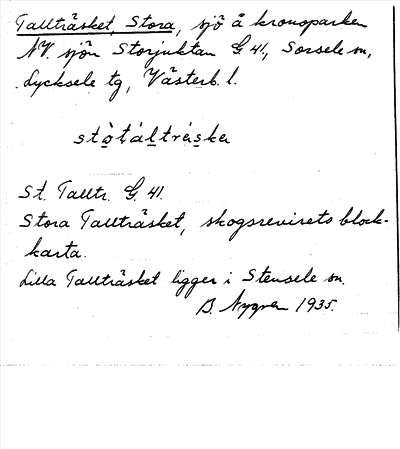 Tallträsket, Stora, sjö å kronoparken
NV. sjön Storjuktan G 41, Sorsele sn,
Lycksele tg, Västerb. l.
stòtáltrạ̈ska
St.Талltr. G. 41.
Stora Tallträsket, skogsrevirets block-
karta.
Lilla Tallträsket ligger i Stensele sn.
B. Nygren 1935.